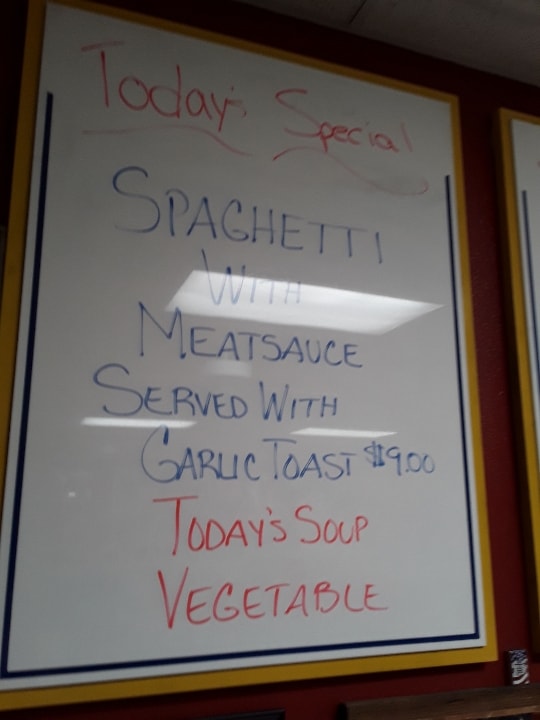 Today's Special
SPAGHETTI
WITH
MEATSAUCE
SERVED WITH
GARLIC TOAST $9.00
TODAY'S SOUP
VEGETABLE